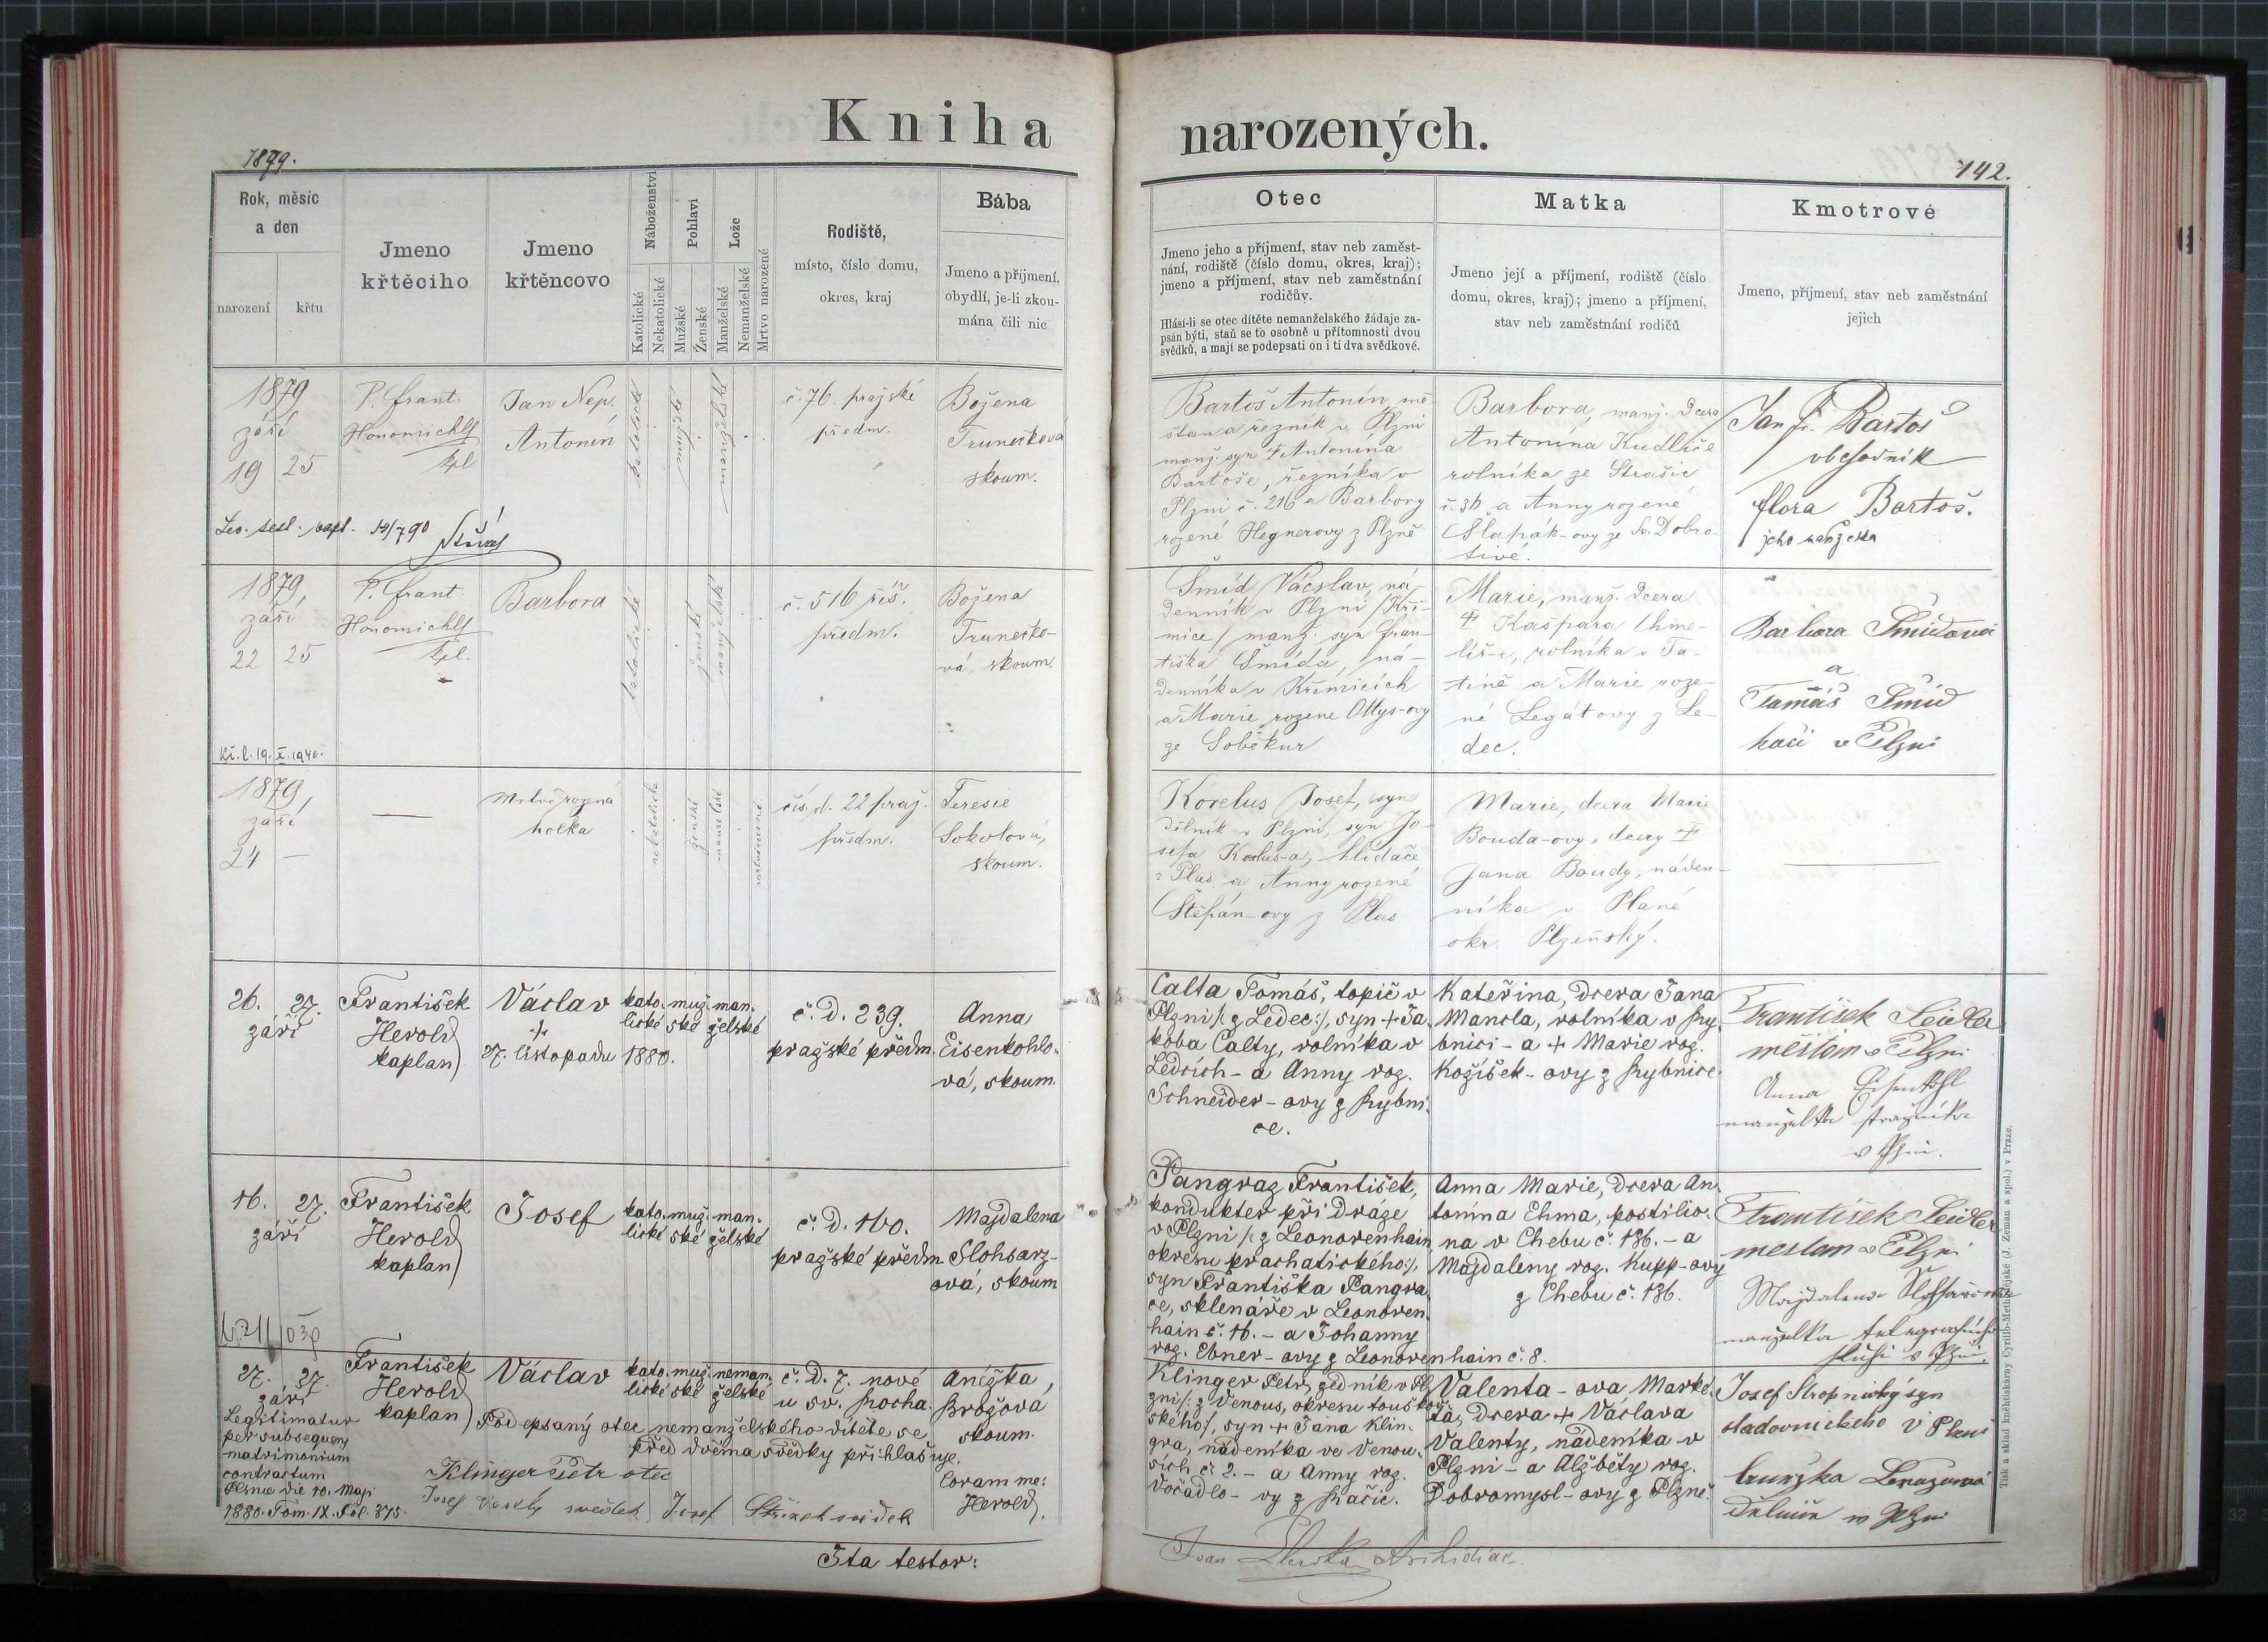 Kniha narozených.
1879.
142.
Rok, měsíc
a den
narození
křtu
Jmeno
křtěcího
Jmeno
křtěncovo
Náboženství
Katolické
Nekatolické
Pohlaví
Mužské
Ženské
Lože
Manželské
Nemanželské
Mrtvo narozené
Rodiště,
místo, číslo domu,
okres, kraj
Bába
Jmeno a příjmení,
obydlí, je-li zkou-
mána čili nic
Otec
Jmeno jeho a příjmení, stav neb zaměst-
nání, rodiště (číslo domu, okres, kraj);
jmeno a příjmení, stav neb zaměstnání
rodičův.
Hlásí-li se otec dítěte nemanželského žádaje za-
psán býti, staň se to osobně u přítomnosti dvou
svědků, a mají se podepsati on i ti dva svědkové.
Matka
Jmeno její a příjmení, rodiště (číslo
domu, okres, kraj); jmeno a příjmení,
stav neb zaměstnání rodičů
Kmotrové
Jmeno, příjmení, stav neb zaměstnání
jejich
1879
září
19 25
P. Frant.
Honomichl
kpl
Jan Nep.
Antonín
katolické
mužské
manželské
č. 76. pražské
předm.
Božena
Trunečková
skoum.
Bartoš Antonín, mě
šťan a řezník v Plzni
manž. syn † Antonína
Bartoše, řezníka v
Plzni č. 216 a Barbory
rozené Hegnerovy z Plzně
Barbora, manž. dcera
Antonína Kudliče
rolníka ze Strašic
č. 36 a Anny rozené
Slapák-ovy ze Sv. Dobro-
tivé.
Jan F. Bartoš
obchodník
Flora Bartoš.
jeho manželka
14/7 90
1879,
září
22 25
P. Frant.
Honomichl
kpl.
Barbora
katolické
ženské
manželské
č. 516 říš.
předm.
Božena
Trunečko-
vá, skoum.
Šmíd Václav, ná-
denník v Plzni /Kři-
mice/ manž. syn Fran-
tiška Šmída, ná-
denníka v Křimicích
a Marie rozené Ottys-ovy
ze Soběkur
Marie, manž. dcera
† Kašpara Chme-
líř-e, rolníka v Ta-
tíně a Marie roze-
né Legátovy z Le-
dec.
Barbora Šmídová
a
Tomáš Šmíd
v Plzni
19. X. 1940.
1879,
září
24 —
—
Mrtvě rozená
holka
katolické
ženské
manželské
mrtvorozené
čís. d. 22 praž.
předm.
Teresie
Sokolová,
skoum.
Korelus Josef, syn
dělník v Plzni, syn Jo-
sefa Korelus-a, hlídače
z Plas a Anny rozené
Štěpán-ovy z Plas
Marie, dcera Marie
Bouda-ovy, dcery †
Jana Boudy, náden-
níka v Plané
okr. Plzeňský.
26. 27.
září
František
Herold
kaplan
Václav
†
27. listopadu 1880.
kato- muž- man-
lické ské želské
č. d. 239.
pražské předm.
Anna
Eisenkohlo-
vá, skoum.
Calta Tomáš, topič v
Plzni /: z Ledec :/, syn † Ja-
koba Calty, rolníka v
Ledcích - a Anny roz.
Schneider-ovy z Rybni-
ce.
Kateřina, dcera Jana
Mancla, rolníka v Ry-
bnici - a † Marie roz.
Kožíšek-ovy z Rybnice.
František Seidler
měšťan v Plzni
Anna Eisenkohl
manželka strážníka
v Plzni.
16. 27.
září
František
Herold
kaplan
Josef
kato- muž- man-
lické ské želské
č. d. 160.
pražské předm.
Majdalena
Slohsarz-
ová, skoum
Pangraz František,
kondukter při dráze
v Plzni /: z Leonorenhain
okresu prachatického :/,
syn Františka Pangra-
ce, sklenáře v Leonoren-
hain č. 16. - a Johanny
roz. Ebner-ovy z Leonorenhain č. 8.
Anna Marie, dcera An-
tonína Ehma, postilio-
na v Chebu č. 136. - a
Majdaleny roz. Kupp-ovy
z Chebu č. 136.
František Seidler
měšťan v Plzni
manželka
v Plzni.
27. 27.
září
Legitimatur
per subsequens
matrimonium
contractum
Plsnae die 10. Maji
1880. Tom. IX. Fol. 375.
František
Herold
kaplan
Václav
kato- muž- neman-
lické ské želské
č. d. 7. nové
u sv. Rocha.
Anežka
Brožova
skoum.
Podepsaný otec nemanželského dítěte se
před dvěma svědky přihlašuje.
Klinger Petr otec
Josef Veselý svědek
Josef Střížek svědek
Coram me:
Herold.
Klinger Petr, zedník v Pl-
zni /: z Venous, okresu touškov-
ského :/, syn † Jana Klin-
gra, nádeníka ve Venou-
sích č. 2. - a Anny roz.
Voradlo-vy z Račic.
Valenta-ova Marké-
ta, dcera † Václava
Valenty, nádeníka v
Plzni - a Alžběty roz.
Dobromysl-ovy z Plzně.
Josef Stropnický syn
sladovnického v Plzni
v Plzni
Ita testor:
Archidiac.
Tisk a sklad knihtiskárny Cyrillo-Methodějské (J. Zeman a spol.) v Praze.